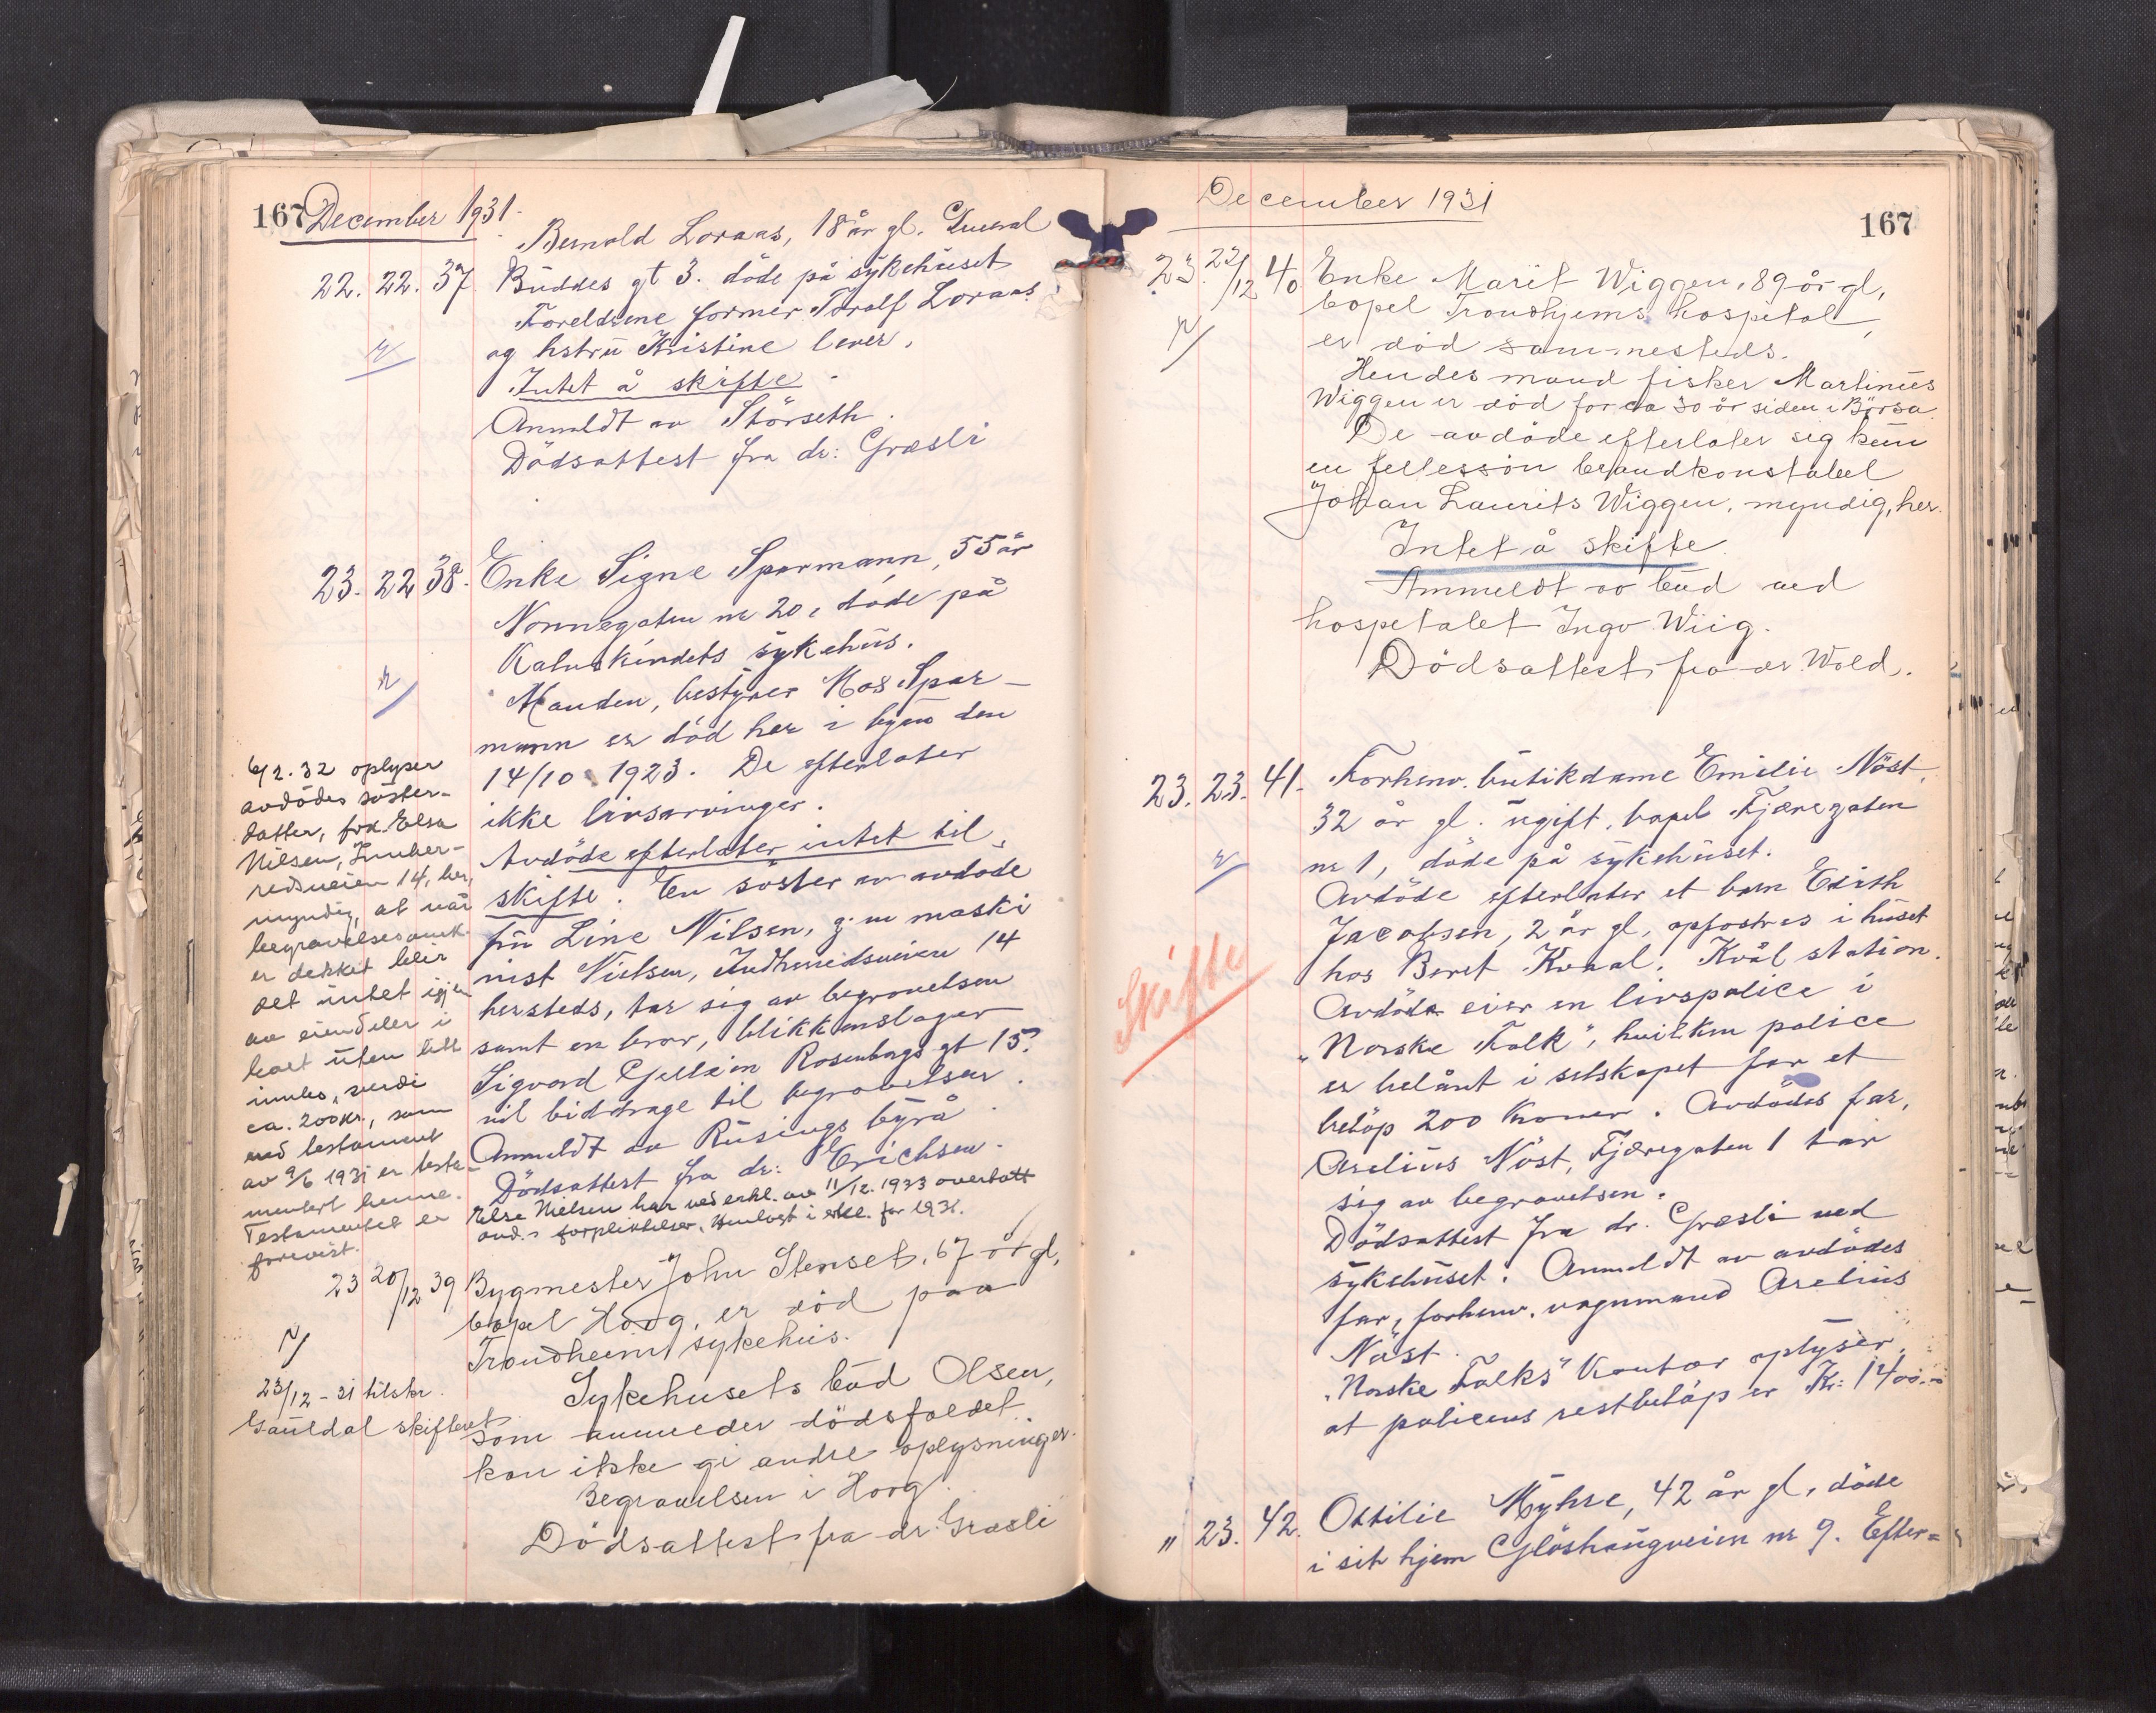 167 December 1931.
Bernold Loraas, 18 år gl. General
22. 22. 37 Buddes gt 3. döde på sykehuset
Foreldrene former Toralf Loraas
og hstru Kristine lever.
Intet å skifte.
Anmeldt av Störseth.
Dödsattest fra dr: Græsli
23. 22 38. Enke Signe Sparmann, 55 år
Nonnegaten nr 20, döde på
Kalvskindets sykehus.
Manden, bestyrer Spar-
mann er död her i byen den
14/10 1923. De efterlater
ikke livsarvinger.
Avdöde efterlater intet til
skifte. En söster av avdöde
fru Line Nilsen, g. m maski
nist Nielsen, Indherredsveien 14
hersteds, tar sig av begravelsen
samt en bror, blikkenslager
Sigvard Gellein Rosenborgs gt 15?
vil biddrage til begravelsen.
Anmeldt av Rusings byrå.
Dödsattest fra dr: Erichsen.
Else Nielsen har ved erkl. av 11/12. 1933 overtatt
avd.s forpliktelser,
6/2. 32 oplyser
avdödes söster-
datter, frk. Elsa
Nilsen, Innher-
redsveien 14, her,
myndig, at når
begravelsesomk.
er dekket blir
det intet igjen
av eiendeler i
boet uten litt
innbo, verdi
ca. 200 kr., som
ved testament
av 9/6 1931 er testa-
mentert henne.
Testamentet er
forevist.
23 20/12 39 Bygmester John Stenset, 67 år gl,
bopel Horg, er död paa
Trondheim sykehus.
Sykehusets bud Olsen,
som anmeder dödsfaldet
kan ikke gi andre oplysninger.
Begravelsen i Horg.
Dödsattest fra dr. Græsli
23/12 - 31 tilskr.
Gauldal skifteret
December 1931
167
23. 22/12 40 Enke Marit Wiggen, 89 år gl,
bopel Trondhjems hospital,
er död sammesteds.
Hendes mand fisker Martinus
Wiggen er död for ca 30 år siden i Börsa.
De avdöde efterlater sig kun
en fellessön brandkonstabel
Johan Laurits Wiggen, myndig, her.
Intet å skifte.
Anmeldt av bud ved
hospetalet Ingv. Wiig.
Dödsattest fra dr. Wold.
23. 23. 41. Forhenv. butikdame Emilie Nöst,
32 år gl. ugift, bopel Fjæregaten
nr 1, döde på sykehuset.
Avdöde efterlater et barn Edith
Jacobsen, 2 år gl, opfostres i huset
hos Beret Kvaal, Kvål station.
Avdöde eier en livspolice i
"Norske Folk", hvilken police
er belånt i selskapet for et
belöp 200 kroner. Avdödes far,
Arelius Nöst, Fjæregaten 1 tar
sig av begravelsen.
Dödsattest fra dr. Græsli ved
sykehuset. Anmeldt av avdödes
far, forhenv. vognmand Arelius
Nöst.
"Norske Folks" kontor oplyser
at policens restbelöp er Kr: 1400.-
Skifte
" 23. 42. Ottilie Myhre, 42 år gl, döde
i sit hjem Glöshaugveien nr 9. Efter=